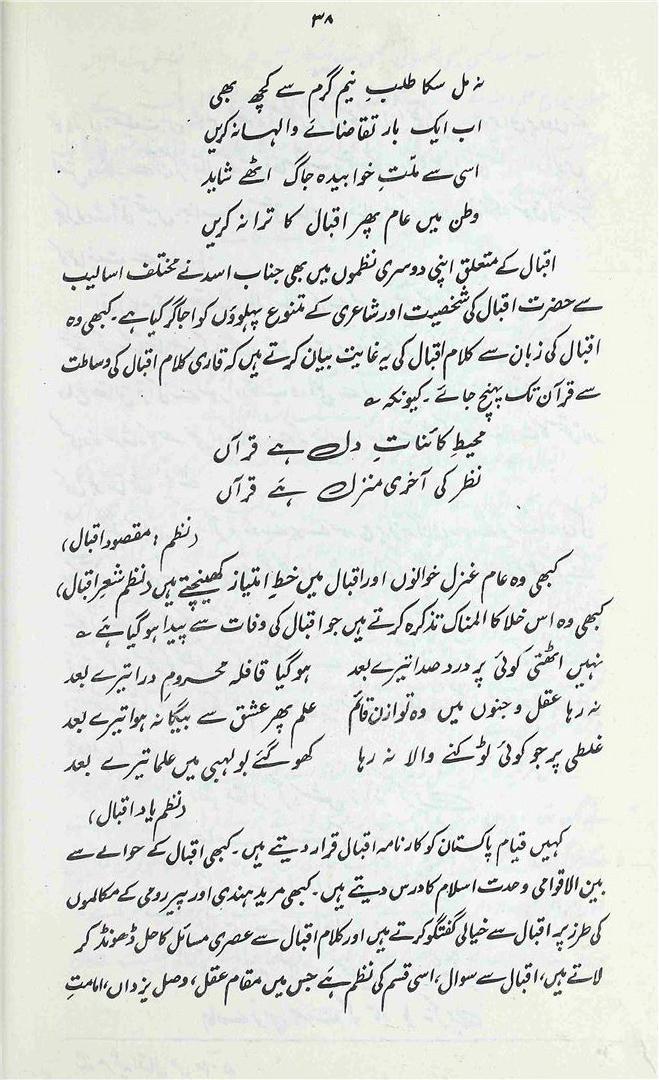 ۳۸
نہ مل سکا طلبِ نیم گرم سے کچھ بھی
اب ایک بار تقاضائے والہانہ کریں
اسی سے ملّتِ خوابیدہ جاگ اٹھے شاید
وطن میں عام پھر اقبال کا ترانہ کریں
اقبال کے متعلق اپنی دوسری نظموں میں بھی جناب اسد نے مختلف اسالیب
سے حضرت اقبال کی شخصیت اور شاعری کے متنوع پہلوؤں کو اجاگر کیا ہے۔ کبھی وہ
اقبال کی زبان سے کلامِ اقبال کی یہ غایت بیان کرتے ہیں کہ قاری کلام اقبال کی وساطت
سے قرآن تک پہنچ جائے۔ کیونکہ ؎
محیطِ کائناتِ دل ہے قرآں
نظر کی آخری منزل ہے قرآں
(نظم: مقصودِ اقبال)
کبھی وہ عام غزل خوانوں اور اقبال میں خطِ امتیاز کھینچتے ہیں (نظم شعرِ اقبال)
کبھی وہ اس خلا کا المناک تذکرہ کرتے ہیں جو اقبال کی وفات سے پیدا ہو گیا ہے ؎
نہیں اٹھتی کوئی پر درد صدا تیرے بعد ہو گیا قافلہ محرومِ درا تیرے بعد
نہ رہا عقل و جنوں میں وہ توازن قائم علم پھر عشق سے بیگانہ ہوا تیرے بعد
غلطی پر جو کوئی ٹوکنے والا نہ رہا کھو گئے بولہبی میں علما تیرے بعد
(نظم یادِ اقبال)
کہیں قیامِ پاکستان کو کارنامہ اقبال قرار دیتے ہیں۔ کبھی اقبال کے حوالے سے
بین الاقوامی وحدت اسلام کا درس دیتے ہیں۔ کبھی مرید ہندی اور پیر رومی کے مکالموں
کی طرز پر اقبال سے خیالی گفتگو کرتے ہیں اور کلام اقبال سے عصری مسائل کا حل ڈھونڈ کر
لاتے ہیں، اقبال سے سوال، اسی قسم کی نظم ہے جس میں مقام عقل، وصل یزداں، امامتِ